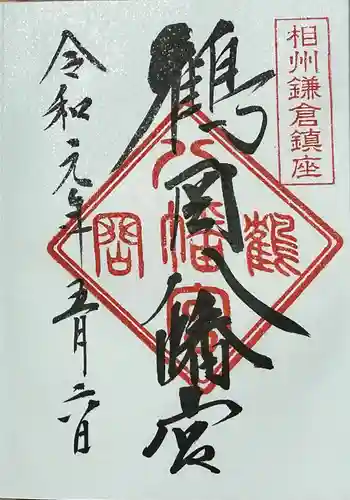 相州鎌倉鎮座
鶴岡八幡宮
鶴
八幡宮
岡
令和元年五月六日